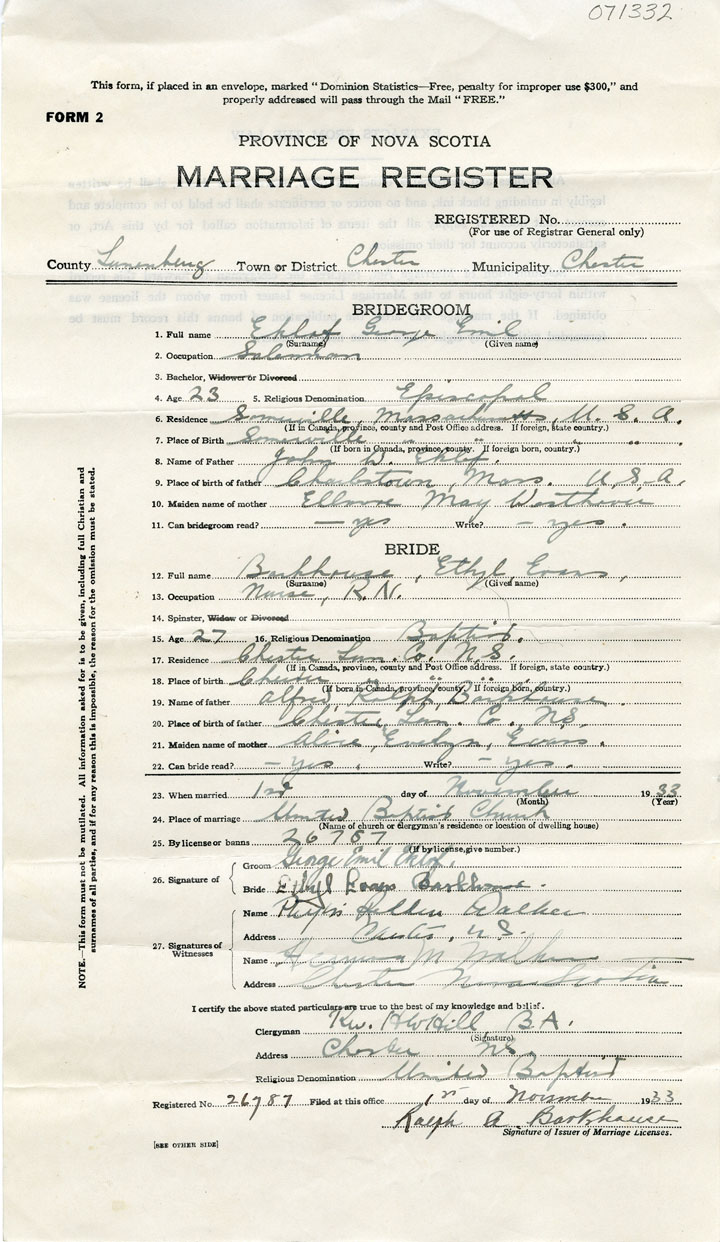 071332
This form, if placed in an envelope, marked "Dominion Statistics—Free, penalty for improper use $300," and
properly addressed will pass through the Mail "FREE."
FORM 2
PROVINCE OF NOVA SCOTIA
MARRIAGE REGISTER
REGISTERED No.
(For use of Registrar General only)
County Lunenburg Town or District Chester Municipality Chester
BRIDEGROOM
1. Full name Eklof George Emil
(Surname) (Given name)
2. Occupation Salesman
3. Bachelor, Widower or Divorced
4. Age 23 5. Religious Denomination Episcopal
6. Residence Somerville, Massachusetts, U. S. A.
(If in Canada, province, county and Post Office address. If foreign, state country.)
7. Place of Birth Somerville " " "
(If born in Canada, province, county. If foreign born, country.)
8. Name of Father John W. Eklof
9. Place of birth of father Charlestown, Mass. U.S.A.
10. Maiden name of mother May
11. Can bridegroom read? — yes Write? — yes.
BRIDE
12. Full name Barkhouse, Ethyl, Evans,
(Surname) (Given name)
13. Occupation Nurse, R.N.
14. Spinster, Widow or Divorced
15. Age 27 16. Religious Denomination Baptist.
17. Residence Chester Lun. Co. N.S.
(If in Canada, province, county and Post Office address. If foreign, state country.)
18. Place of birth Chester " " "
(If born in Canada, province, county. If foreign born, country.)
19. Name of father Alfred, Ralph, Barkhouse
20. Place of birth of father Chester, Lun. Co., N.S.
21. Maiden name of mother Alice, Evelyn, Evans.
22. Can bride read? — yes. Write? — yes.
23. When married 1st day of November 1933
(Month) (Year)
24. Place of marriage United Baptist Church
(Name of church or clergyman's residence or location of dwelling house)
25. By license or banns 26787
(If by license, give number.)
26. Signature of
Groom George Emil Eklof.
Bride Ethyl Evans Barkhouse.
27. Signatures of
Witnesses
Name Walker
Address Chester, N.S.
Name M. Walker
Address Chester Nova Scotia
I certify the above stated particulars are true to the best of my knowledge and belief.
Clergyman Rev. H W Hill B.A.
(Signature)
Address Chester N.S.
Religious Denomination United Baptist
Registered No. 26787 Filed at this office 1st day of November 1933
Ralph A. Barkhouse
Signature of Issuer of Marriage Licenses.
[SEE OTHER SIDE]
NOTE.—This form must not be mutilated. All information asked for is to be given, including full Christian and
surnames of all parties, and if for any reason this is impossible, the reason for the omission must be stated.